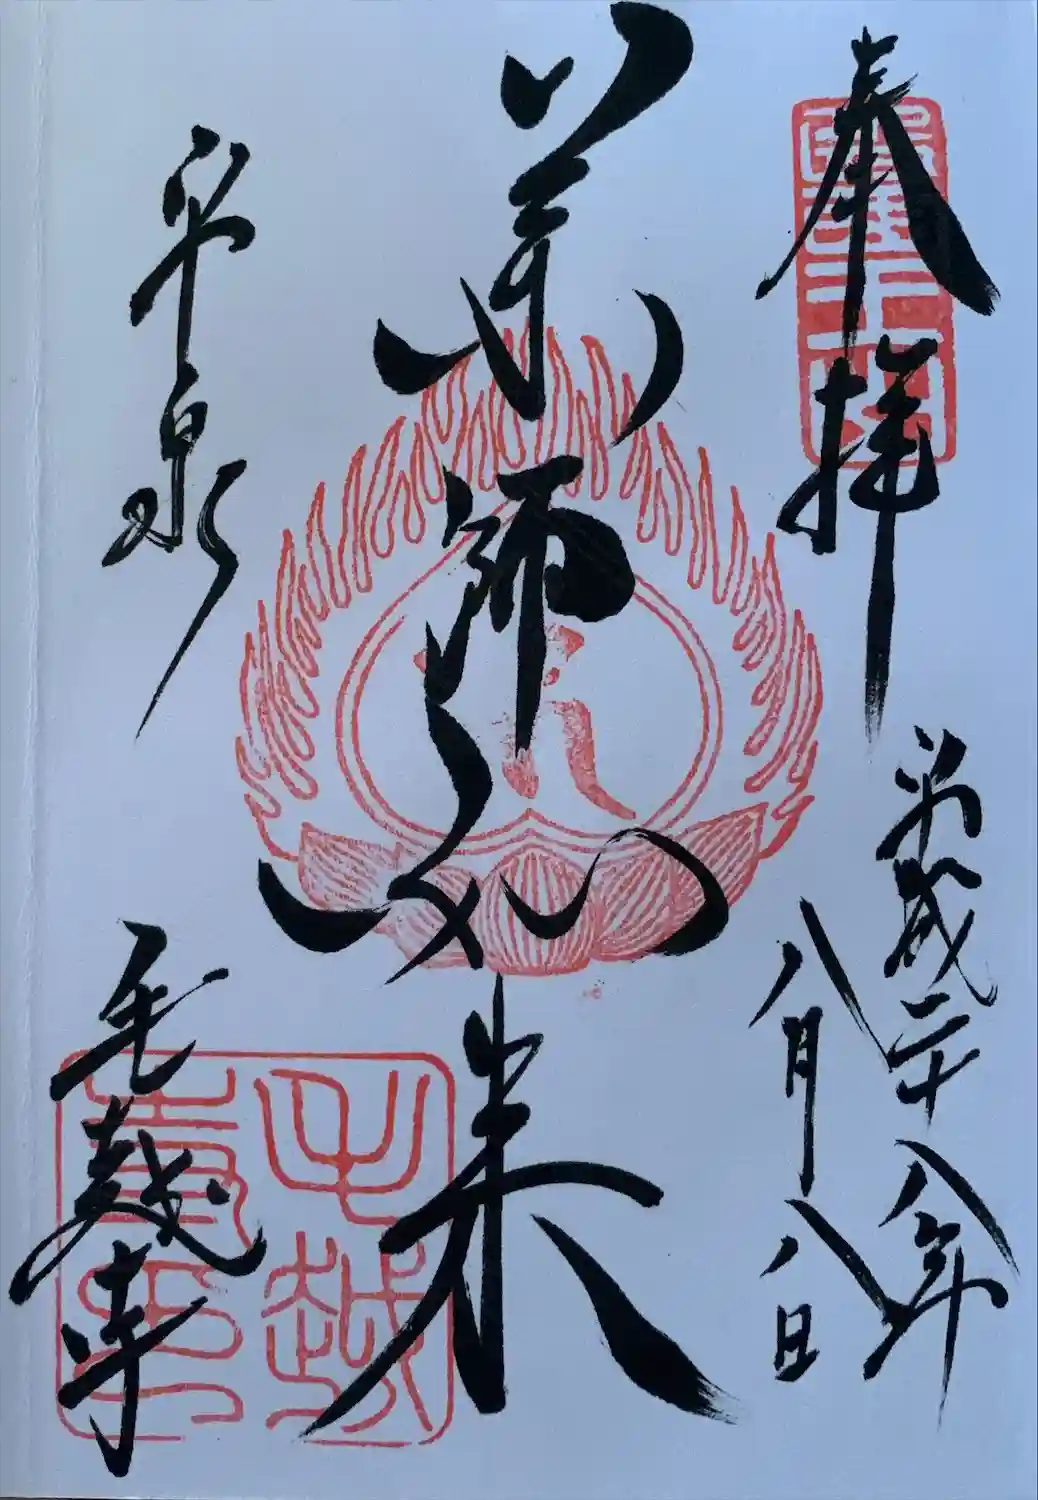 奉拝
平成二十八年
八月八日
薬師如来
平泉
毛越寺
毛越寺印